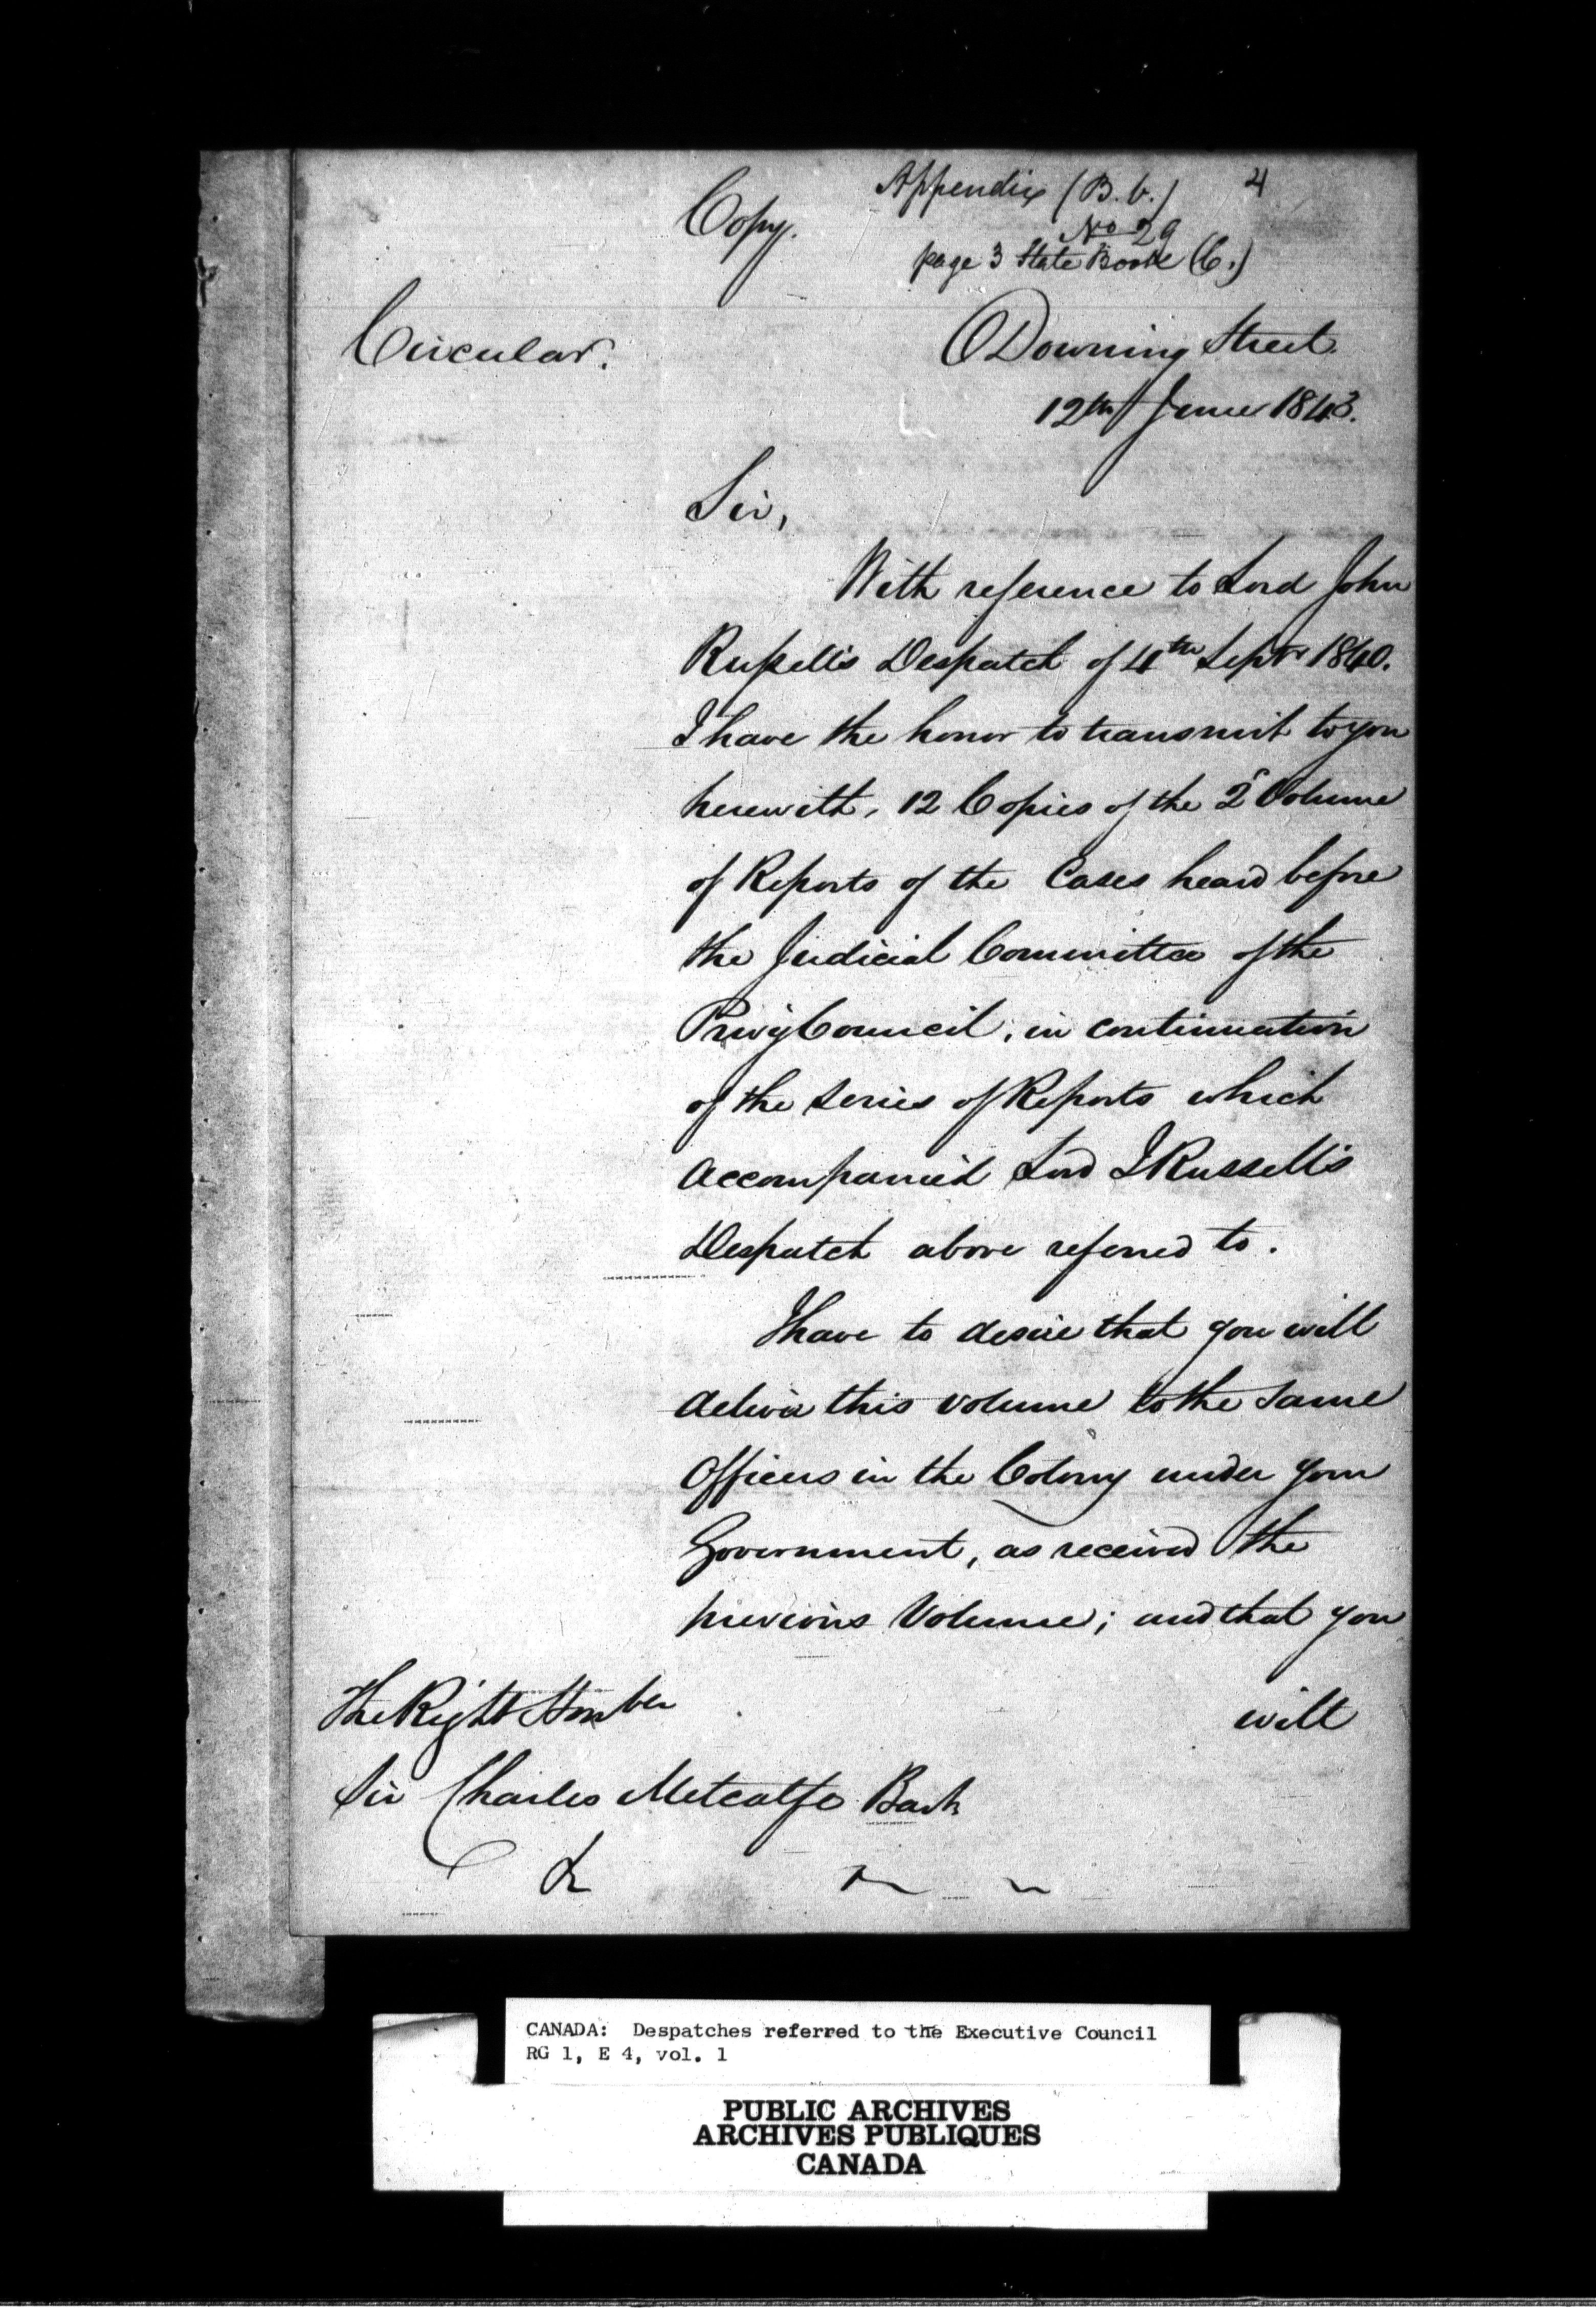 Copy.
Appendix (B.b.) 4
No 29
page 3 State Book (C.)
Circular.
Downing Street
12th June 1843.
Sir,
With reference to Lord John
Russell's Despatch of 4th Septr 1840.
I have the honor to transmit to you
herewith, 12 Copies of the 2d Volume
of Reports of the Cases heard before
the Judicial Committee of the
Privy Council, in continuation
of the series of Reports which
accompanied Lord J Russell's
Despatch above referred to.
I have to desire that you will
deliver this volume to the same
Officers in the Colony under your
Government, as received the
previous Volume; and that you
will
The Right Honble
Sir Charles Metcalfe Bart
&
CANADA: Despatches referred to the Executive Council
RG 1, E 4, vol. 1
PUBLIC ARCHIVES
ARCHIVES PUBLIQUES
CANADA